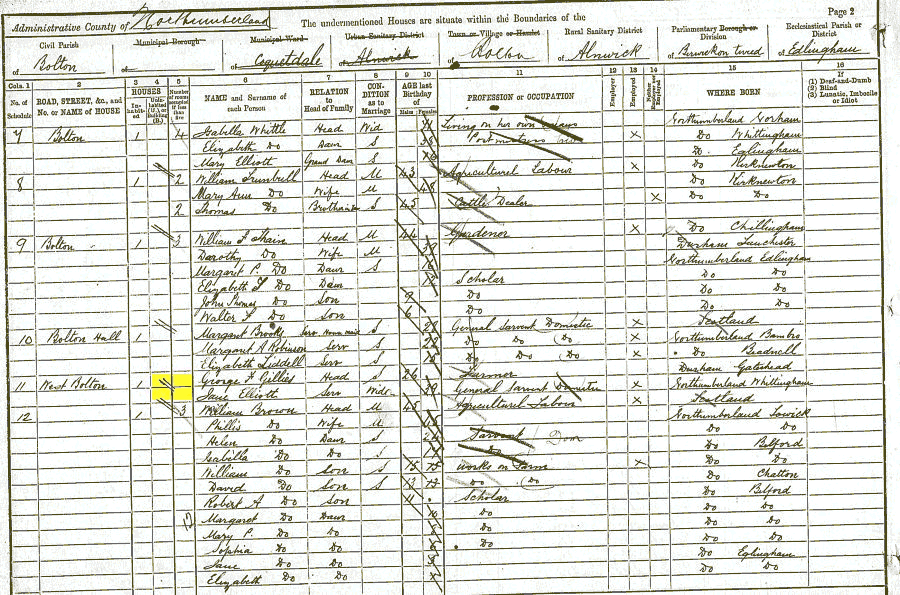 Page 2
Administrative County of Northumberland The undermentioned Houses are situate within the Boundaries of the
Civil Parish Municipal Borough Municipal Ward Urban Sanitary District Town or Village or Hamlet Rural Sanitary District Parliamentary Borough or Division Ecclesiastical Parish or District
of Bolton of of Coquetdale of Alnwick of Bolton of Alnwick of Berwick on Tweed of Edlingham
Cols. 1 2 3 4 5 6 7 8 9 10 11 12 13 14 15 16
No. of Schedule ROAD, STREET, &c., and No. or NAME of HOUSE HOUSES Inhabited Uninhabited (U.), or Building (B.) Number of rooms occupied if less than five NAME and Surname of each Person RELATION to Head of Family CONDITION as to Marriage AGE last Birthday of Males Females PROFESSION or OCCUPATION Employer Employed Neither Employer nor Employed WHERE BORN If (1) Deaf-and-Dumb (2) Blind (3) Lunatic, Imbecile or Idiot
7 Bolton 1 4 Isabella Whittle Head Wid Living on her own means Northumberland
Elizabeth Do Daur S Post x Do Whittingham
Mary Elliott Grand Daur S Do Eglingham
8 1 2 William Turnbull Head M 43 Agricultural Labour x Do Kirknewton
Mary Ann Do Wife M 48 Do Kirknewton
2 Thomas Do S 45 Cattle Dealer x Do Do
9 Bolton 1 3 William Head M 44 Gardener x Do Chillingham
Dorothy Do Wife M 38 Durham Lanchester
Margaret Do Daur S 16 Northumberland Edlingham
Elizabeth Do Daur Scholar Do Do
John Thomas Do Son 9 Do Do Do
Walter Do Son 6 Do Do Do
10 Bolton Hall 1 Margaret Brooks Serv S General Servant Domestic x Scotland
Margaret A Robinson Serv S Do Do Do x Northumberland Bambro
Elizabeth Liddell Serv S Do Do Do x Do Beadnell
11 West Bolton 1 George Gillies Head S 26 Farmer Durham Gateshead
Jane Elliott Serv Wid General Servant Domestic x Northumberland Whittingham
12 1 3 William Brown Head M 45 Agricultural Labour x Scotland
Phillis Do Wife M Northumberland Lowick
Helen Do Daur S Servant Dom Do Do
Isabella Do Do S Do Do Belford
William Do Son S 15 works on Farm x Do Do
David Do Son S 13 Do Do Do Chatton
Robert A Do Son 11 Scholar Do Belford
Margaret Do Daur 10 Do Do Do
Mary Do Do Do Do Do
Sophia Do Do Do Do Do
Jane Do Do Do Eglingham
Elizabeth Do Do Do Do